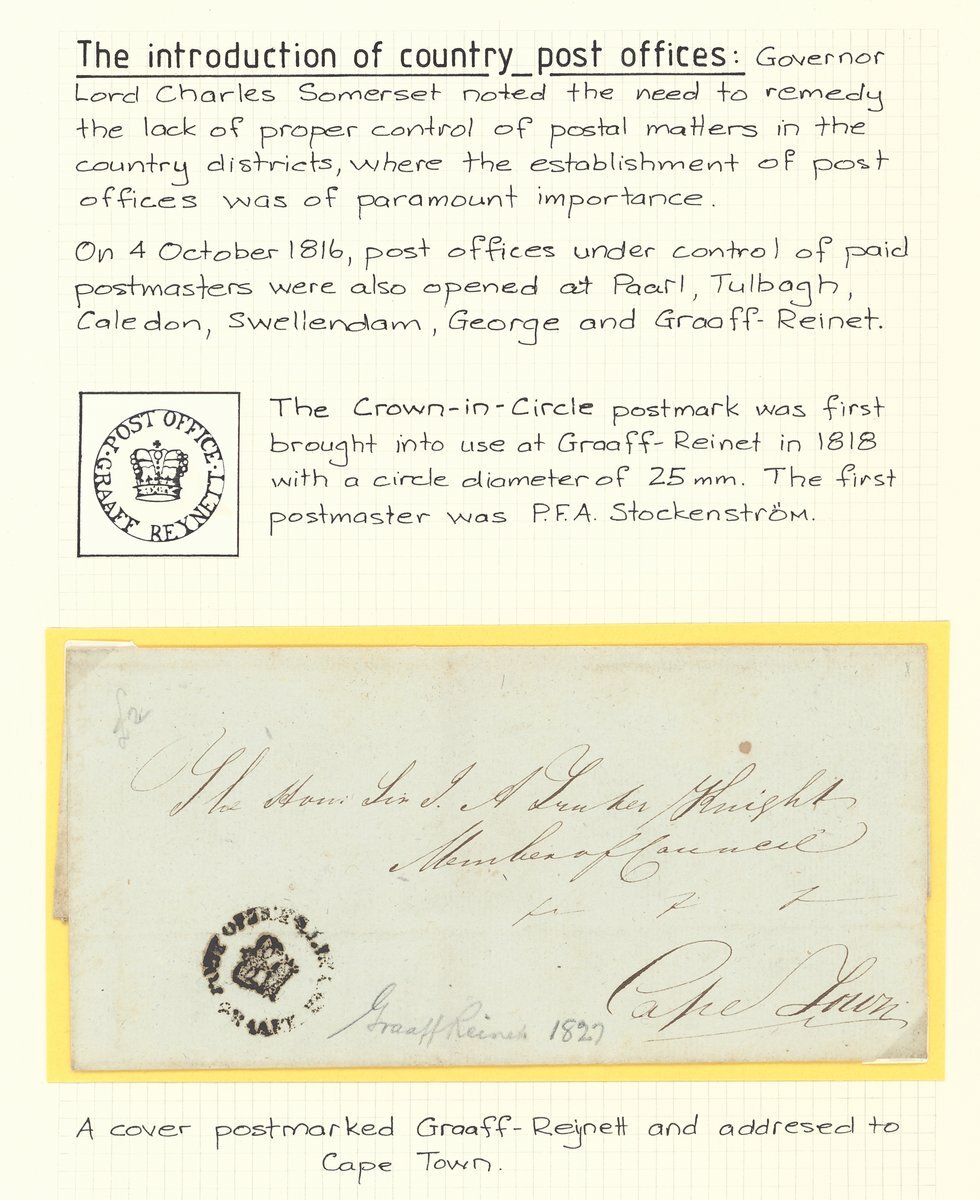 The introduction of country post offices: Governor
Lord Charles Somerset noted the need to remedy
the lack of proper control of postal matters in the
country districts, where the establishment of post
offices was of paramount importance.
On 4 October 1816, post offices under control of paid
postmasters were also opened at Paarl, Tulbagh,
Caledon, Swellendam, George and Graaff-Reinet.
·POST OFFICE·
GRAAFF REYNETT
The Crown-in-Circle postmark was first
brought into use at Graaff-Reinet in 1818
with a circle diameter of 25mm. The first
postmaster was P.F.A. Stockenström.
The Hon: Sir J. A Truter Knight
Member of Council
Cape Town
POST OFFICE
GRAAFF
Graaff Reinet 1827
A cover postmarked Graaff-Reijnett and addresed to
Cape Town.